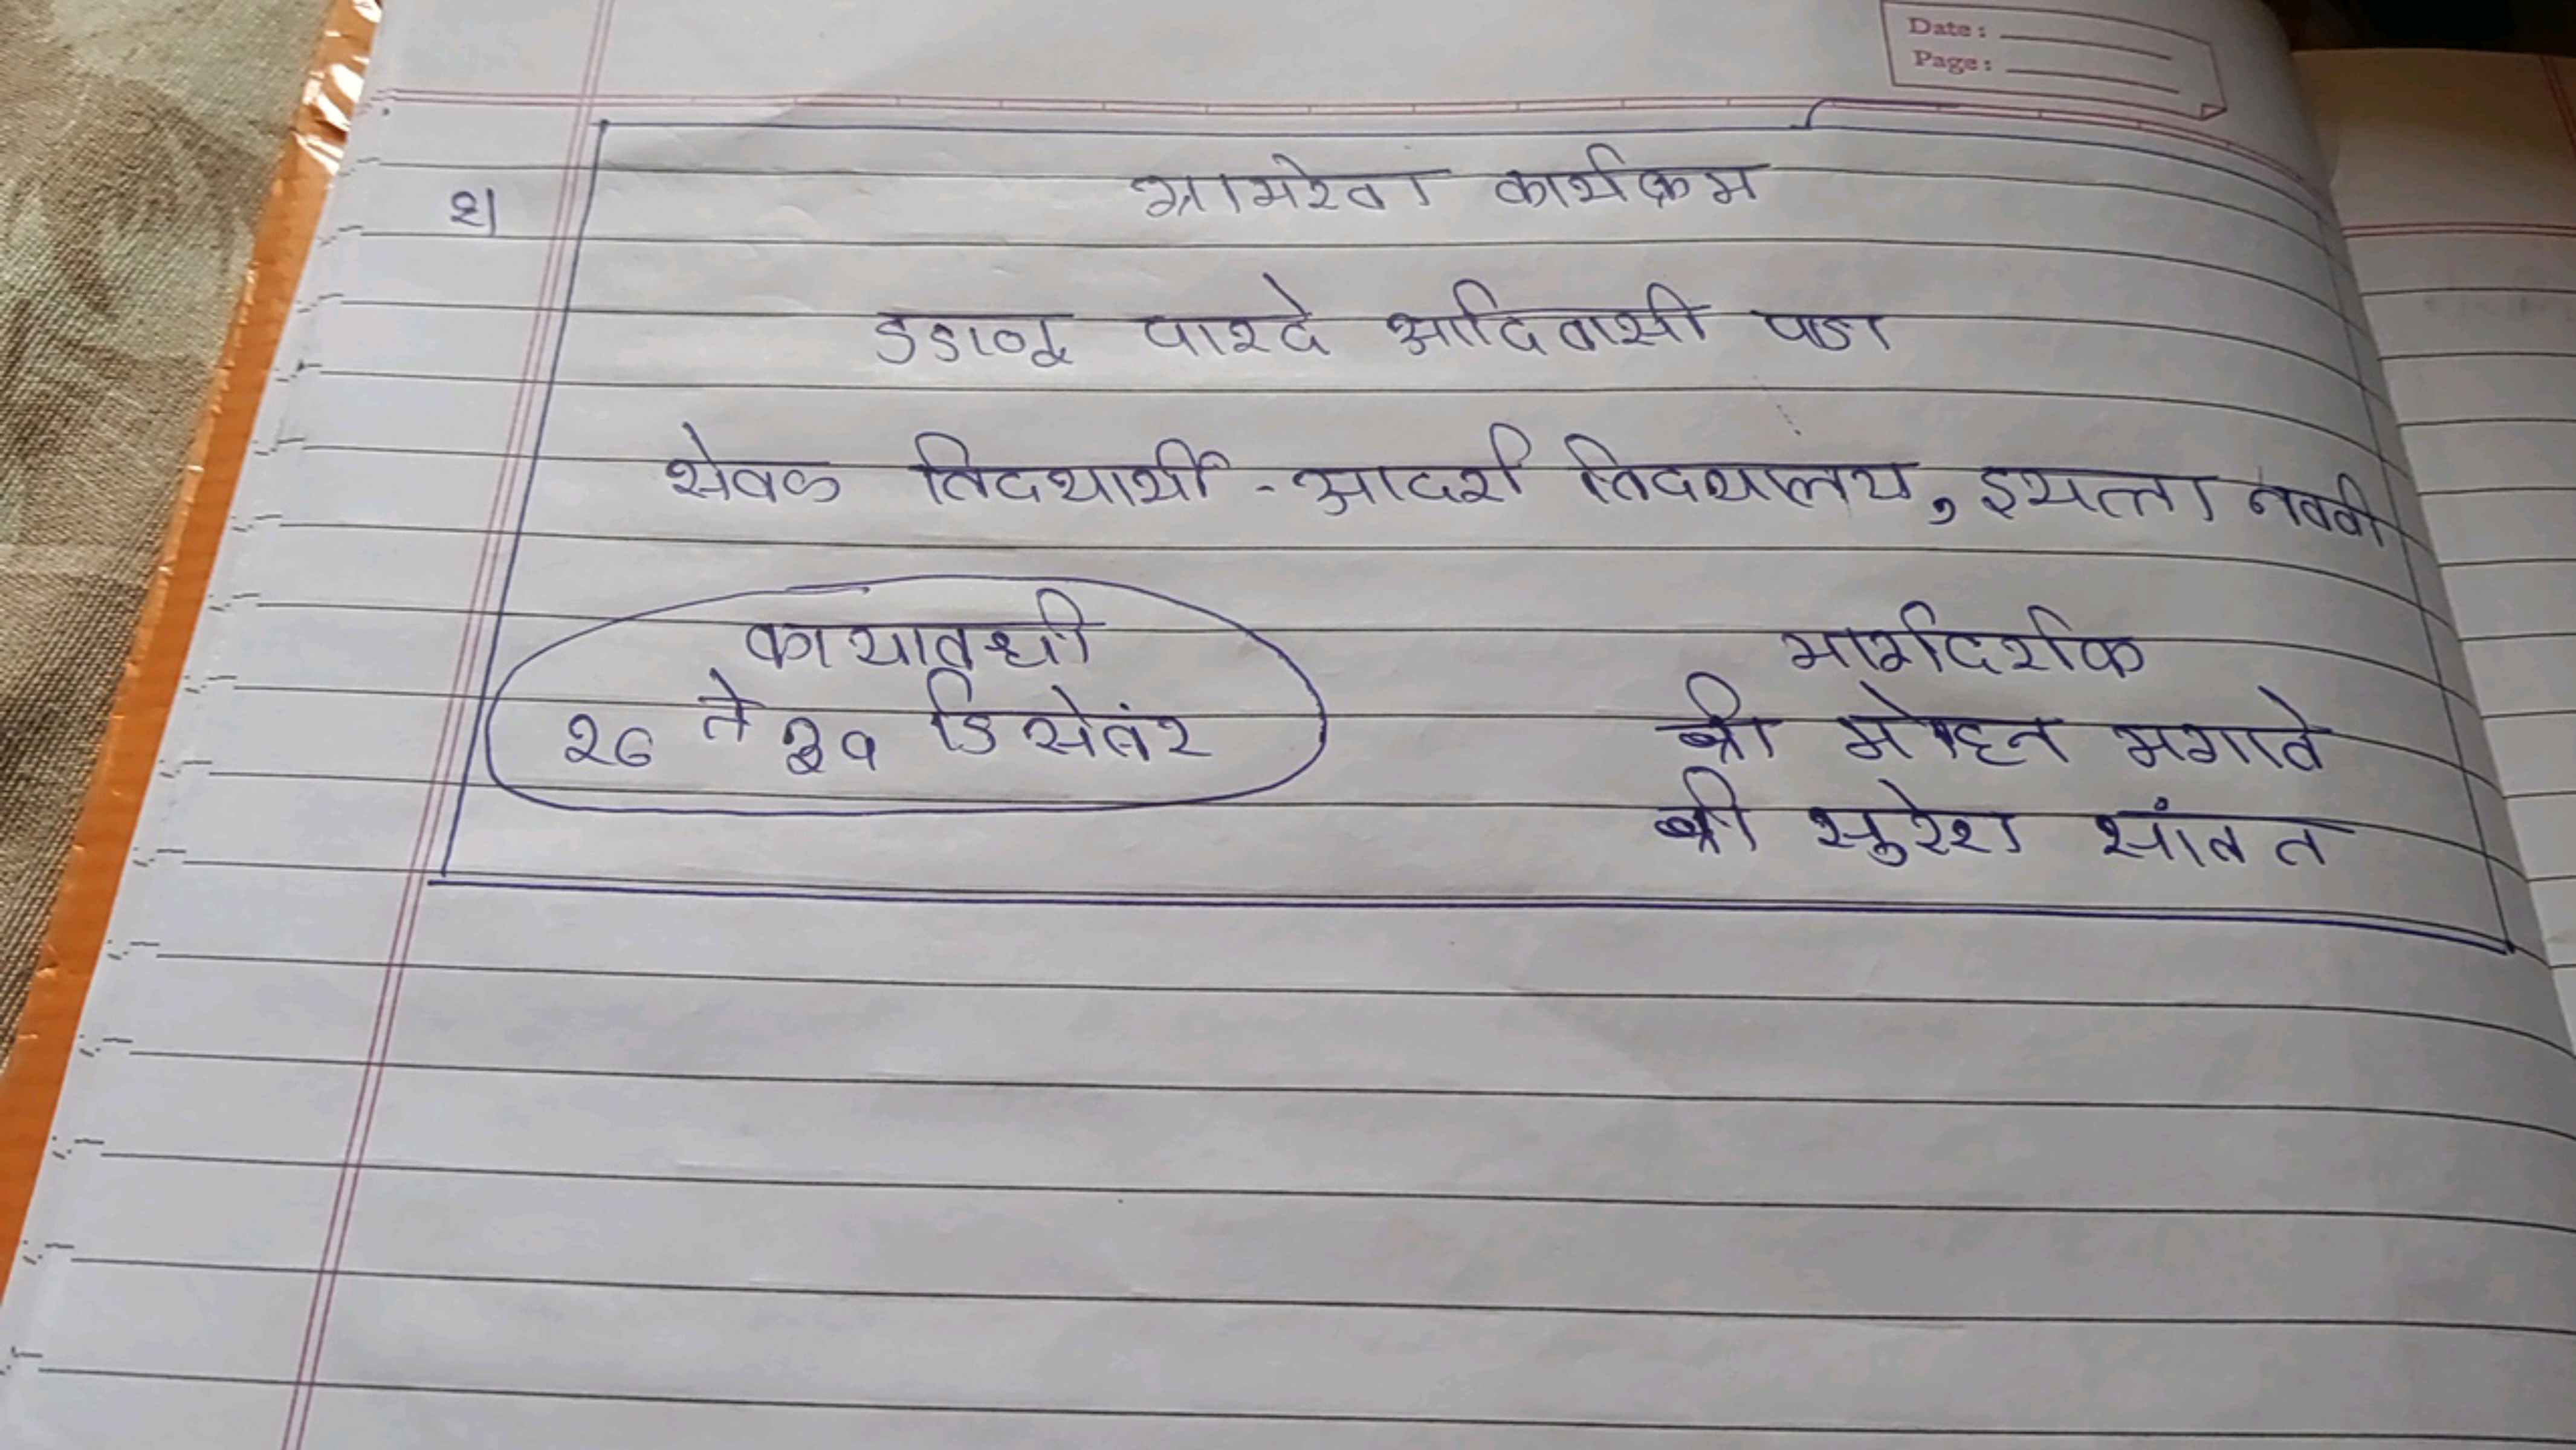 Date :
Page :
२)
ग्रामसेवा कार्यक्रम
डहाणू पारदे आदिवासी पाडा
सेवक विद्यार्थी - आदर्श विद्यालय, इयत्ता नववी
कार्यावधी
२७ ते ३१ डिसेंबर
मार्गदर्शक
श्री मोहन मगावे
श्री सुरेश सांवत